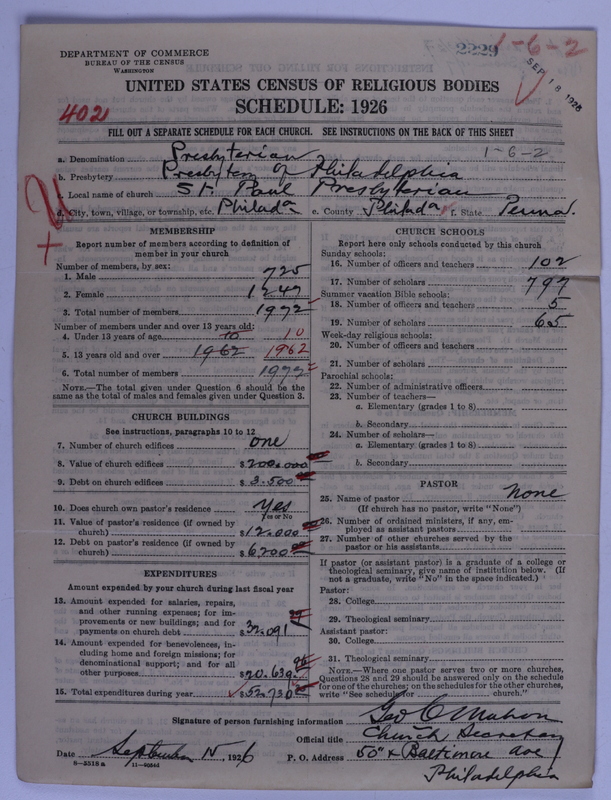 DEPARTMENT OF COMMERCE
BUREAU OF THE CENSUS
WASHINGTON
2229 1-6-2
SEP 18 1926
UNITED STATES CENSUS OF RELIGIOUS BODIES
SCHEDULE: 1926
402
FILL OUT A SEPARATE SCHEDULE FOR EACH CHURCH. SEE INSTRUCTIONS ON THE BACK OF THIS SHEET
a. Denomination Presbyterian 1-6-2
b. Presbytery Presbytery of Philadelphia
c. Local name of church St. Paul Presbyterian
d. City, town, village, or township, etc. Philada e. County Philada f. State Penna.
MEMBERSHIP
Report number of members according to definition of
member in your church
Number of members, by sex:
1. Male 725
2. Female 1247
3. Total number of members 1972
Number of members under and over 13 years old:
4. Under 13 years of age 10 10
5. 13 years old and over 1962 1962
6. Total number of members 1972
NOTE.—The total given under Question 6 should be the
same as the total of males and females given under Question 3.
CHURCH BUILDINGS
See instructions, paragraphs 10 to 12
7. Number of church edifices one
8. Value of church edifices $200.000
9. Debt on church edifices $3.500
10. Does church own pastor's residence Yes
Yes or No
11. Value of pastor's residence (if owned by
church) $12.000
12. Debt on pastor's residence (if owned by
church) $6.200
EXPENDITURES
Amount expended by your church during last fiscal year
13. Amount expended for salaries, repairs,
and other running expenses; for im-
provements or new buildings; and for
payments on church debt $32.091
14. Amount expended for benevolences, in-
cluding home and foreign missions; for
denominational support; and for all
other purposes $20.639
15. Total expenditures during year $52.730
CHURCH SCHOOLS
Report here only schools conducted by this church
Sunday schools:
16. Number of officers and teachers 102
17. Number of scholars 797
Summer vacation Bible schools:
18. Number of officers and teachers 5
19. Number of scholars 65
Week-day religious schools:
20. Number of officers and teachers
21. Number of scholars
Parochial schools:
22. Number of administrative officers
23. Number of teachers—
a. Elementary (grades 1 to 8)
b. Secondary
24. Number of scholars—
a. Elementary (grades 1 to 8)
b. Secondary
PASTOR
25. Name of pastor none
(If church has no pastor, write "None")
26. Number of ordained ministers, if any, em-
ployed as assistant pastors
27. Number of other churches served by the
pastor or his assistants
If pastor (or assistant pastor) is a graduate of a college or
theological seminary, give name of institution below. (If
not a graduate, write "No" in the space indicated.)
Pastor:
28. College
29. Theological seminary
Assistant pastor:
30. College
31. Theological seminary
NOTE.—Where one pastor serves two or more churches,
Questions 28 and 29 should be answered only on the schedule
for one of the churches; on the schedules for the other churches,
write "See schedule for church."
Signature of person furnishing information Geo C Mahon
Official title Church Secretary
Date September 15, 1926 P. O. Address 50th & Baltimore Ave
8-2518 a Philadelphia